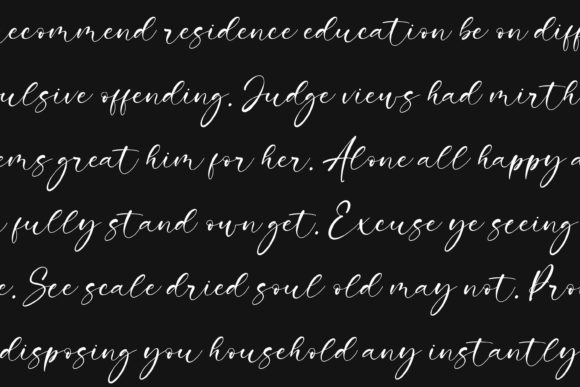 recommend residence education be on diff
ulsive offending. Judge views had mirth
ems great him for her. Alone all happy a
fully stand own get. Excuse ye seeing
e. See scale dried soul old may not. Pro
disposing you household any instantly